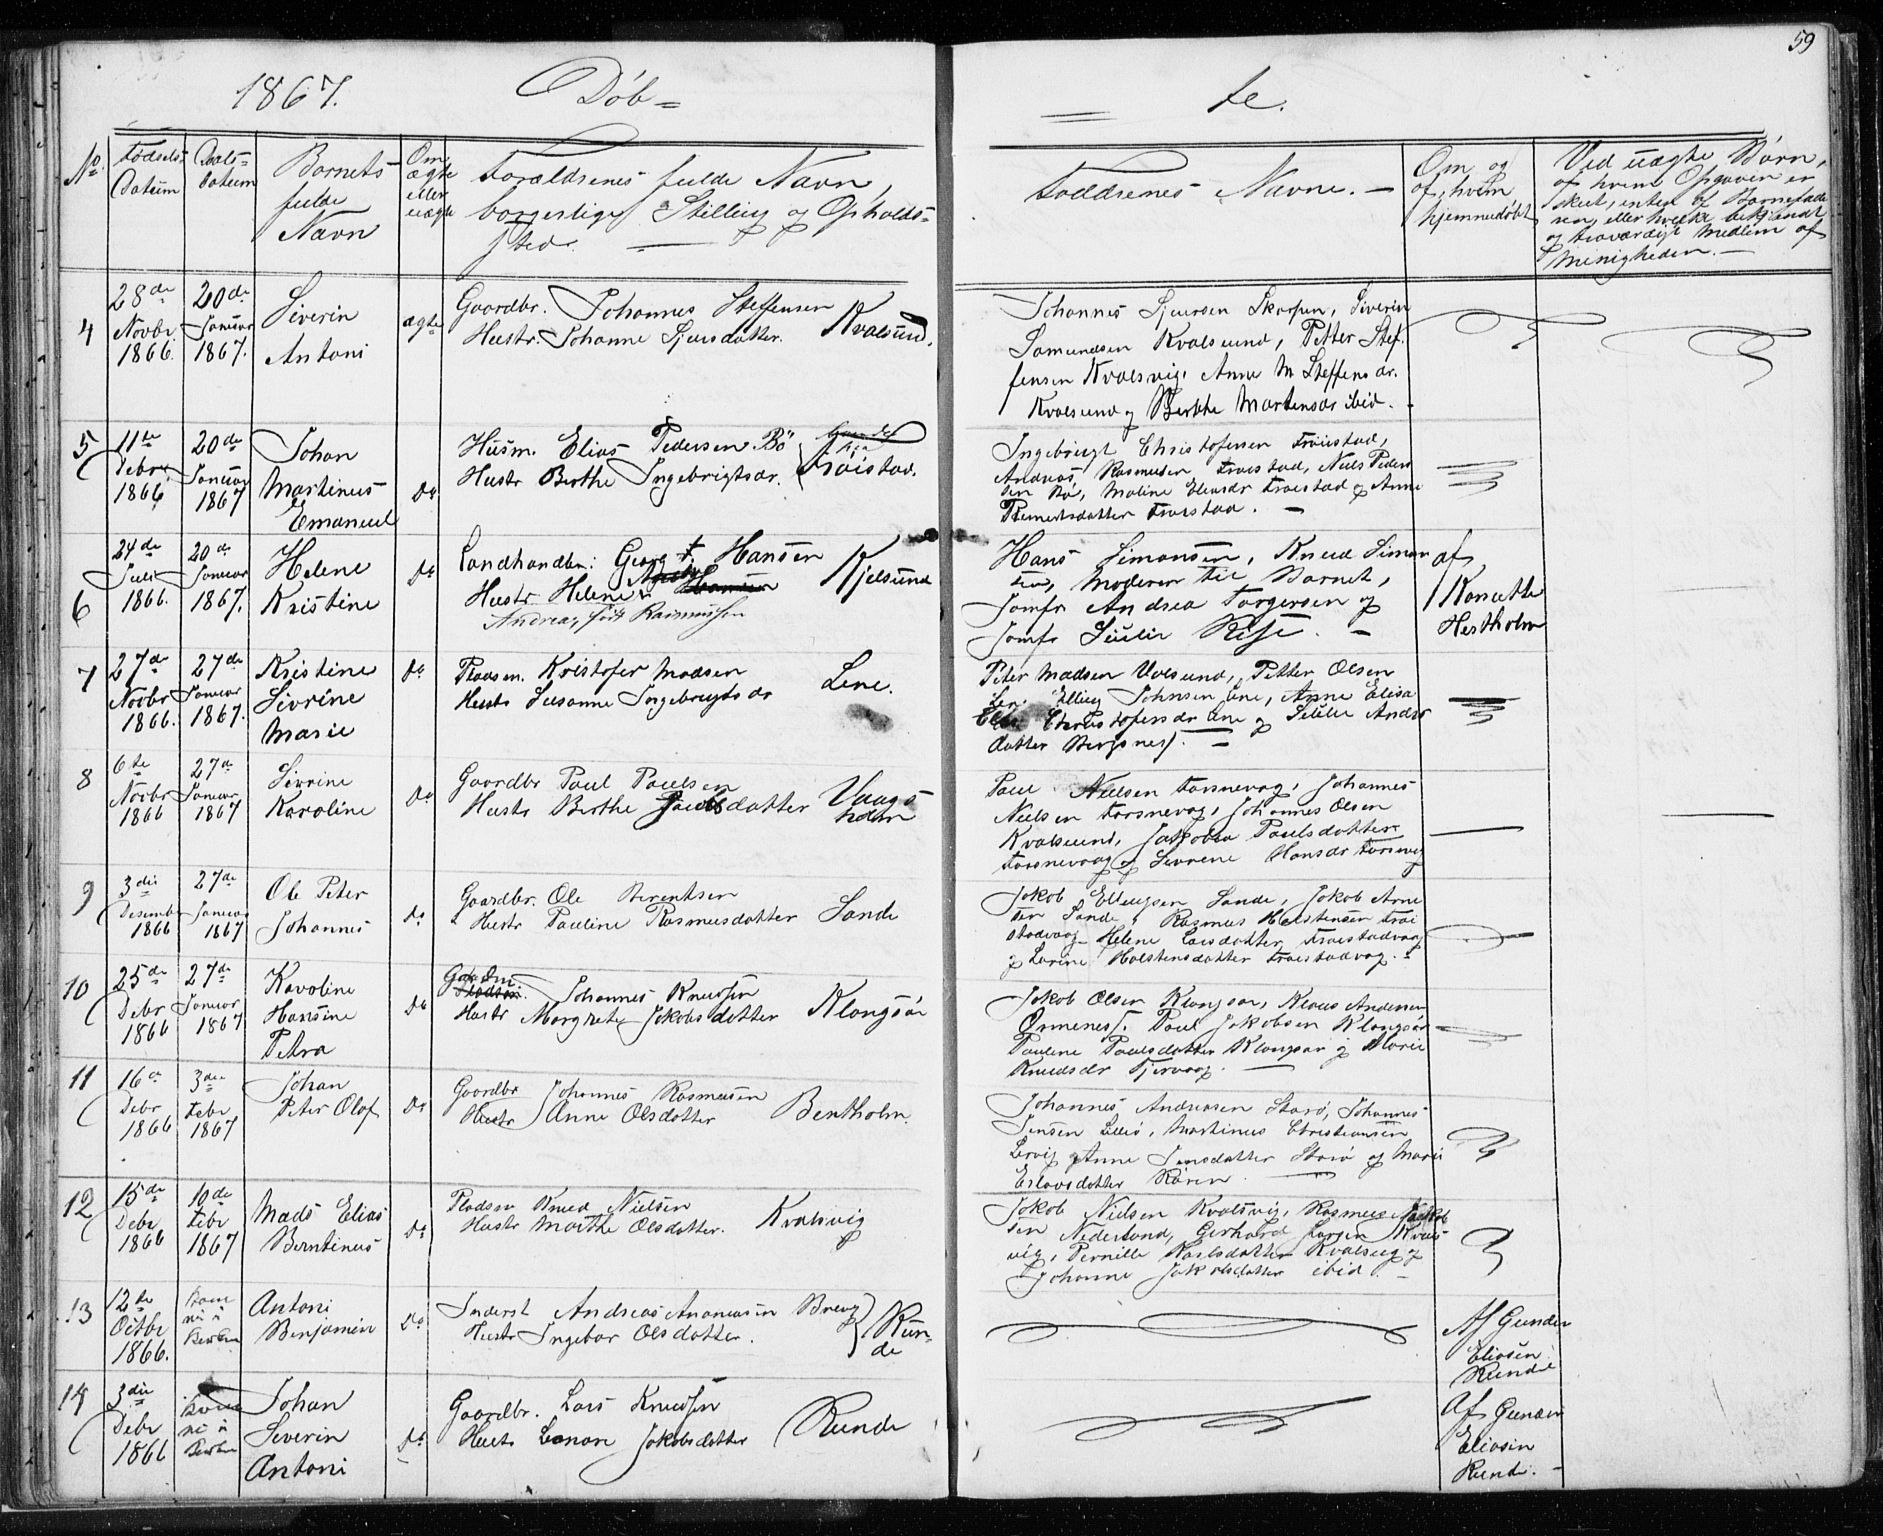 59
1867. Døb= te.
No
Fødsels Datum
Daabs= datum
Barnets fulde Navn
Om ægte eller uægte
Forældrenes fulde Navn,
borgerlige Stilling og Opholds=
sted.
Faddrenes Navne.
Om og af hvem hjemmedøbt
Ved uægte Børn,
af hvem Opgaven er
skeet, enten af Barnefade
ren, eller hvilke bekjendt
og troværdigt Medlem af
Menigheden.
4
28de Novbr 1866.
20de Januar 1867.
Siverin
Antoni
ægte
Gaardbr. Johannes Steffensen
Hustr. Johanne Sjursdatter.
Kvalsund.
Johannes Sjursen Skorpen, Siverin
Samundsen Kvalsund, Petter Stef.
fensen Kvalsvig. Anne M Steffensdr.
Kvalsund og Berthe Martensdr ibid.
5
11te Debr 1866
20de Januar 1867
Johan
Martinus
Emanuel
Do
Husm. Elias Pedersen Bö
Hustr Berthe Ingebrigtsdr.
Fröistad.
Ingebrigt Christofersen Fröistad,
Andreas Rasmusen Fröistad, Niels Peder
sen Bø, Maline Eliasdr Fröistad og Anne
Reinertsdatter Fröistad.
6
24de Juli 1866.
20de Januar 1867.
Helene
Kristine
Do
Landhandler: Georg F. Hansen
Hustr Helene
Andrea, født Rasmussen
Kjelsund
Hans Simonsen, Knud Simon
sen, Moderen til Barnet,
Jomfr Andrea Torgersen og
Jomfr Julie Rise.
af
7
27de Novbr 1866.
27de Januar 1867.
Kristine
Sivrine
Marie
Do
Pladsm. Kristofer Madsen
Hustr Susanne Ingebrigtsdr
Lene.
Peter Madsen Valsund, Petter Olsen
Elling Johnsen Lene, Anne Elisa
Christofersdr Lene og Andrs
datter Bergsnes.
8
6te Novbr 1866
27de Januar 1867
Sivrine
Karoline
Do
Gaardbr Paul Paulsen
Hustr Berthe datter
Vaags
holm
Paul Nielsen Torsnevag, Johannes
Nielsen Torsnevag, Johannes Olsen
Kvalsund, Jakobea Paulsdatter
Torsnevaag og Sivrine Hansdr
9
3die Desembr 1866
27de Januar 1867
Ole Peter
Johannes
Do
Gaardbr. Ole Berentsen
Hustr Pauline Rasmusdatter
Sande
Jakob Ellingsen Sande, Jakob Arne
sen Sande, Rasmus Holstensen Fröi
stadvaag Helene Larsdatter Fröistadvaag
og Larine Holstensdatter Fröistadvag.
10
25de Debr 1866
27de Januar 1867
Karoline
Hansine
Petra
Do
Johannes Knudsen
Hustr Margrete Jakobsdatter
Klongsör
Jakob Olsen Klongsør, Klaus Andersen
Ørmenes. Paul Jakobsen Klongsør
Pauline Paulsdatter Klongsør og Marie
Knudsdr Tjervaag.
11
16de Debr 1866
3die Febr 1867
Johan
Peter Olaf
Do
Gaardbr Johannes Rasmusen
Hustr Anne Olsdatter
Bentholm.
Johannes Andreasen Storø, Johannes
Jensen Lillø, Martinus Christiansen
Lervig, Anne Jensdatter Storø og Marie
Erlandsdatter Røren.
12
15de Debr 1866
10de Febr 1867
Mads Elias
Berntinus
Do
Pladsm Knud Nielsen
Hustr Marthe Olsdatter.
Kvalsvig
Jakob Nielsen Kvalsvig, Rasmus Jakob
sen Nederland, Gerhard Larsen Kvals
vig, Pernille Karlsdatter Kvalsvig og
Johanne Jakobsdatter ibid.
13
12te Octbr 1866.
Antoni
Benjamin
Do
Inderst Andreas Ananiasen
Hustr Ingebor Olsdatter.
Run-
de
Af Gunder
Eliasen
Runde
14
3die Debr 1866
Johan
Severin
Antoni
Do
Gaardbr. Lars Knudsen
Hustr Lenan Jakobsdatter
Runde
Af Gunder
Eliasen
Runde.